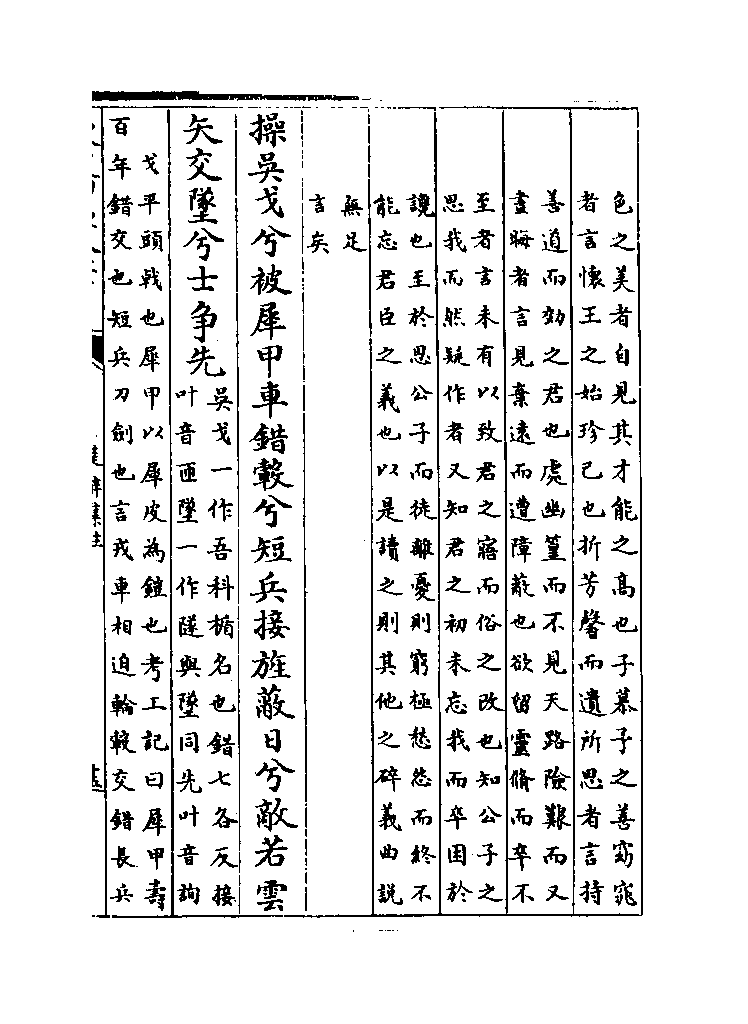 色之美者自見其才能之髙也子慕予之善窈窕
者言懷王之始珍己也折芳馨而遺所思者言持
善道而効之君也處幽篁而不見天路險艱而又
晝晦者言見棄遠而遭障蔽也欲留靈脩而卒不
至者言未有以致君之寤而俗之改也知公子之
思我而然疑作者又知君之初未忘我而卒困於
讒也至於思公子而徒離憂則窮極愁怨而終不
能忘君臣之義也以是讀之則其他之碎義曲説
無足
言矣
操吳戈兮被犀甲車錯轂兮短兵接旌蔽日兮敵若雲
矢交墜兮士争先
吳戈一作吾科楯名也錯七各反接
叶音匝墜一作隧與墜同先叶音詢
戈平頭戟也犀甲以犀皮為鎧也考工記曰犀甲壽
百年錯交也短兵刀劍也言戎車相迫輪轂交錯長兵
楚辭集注